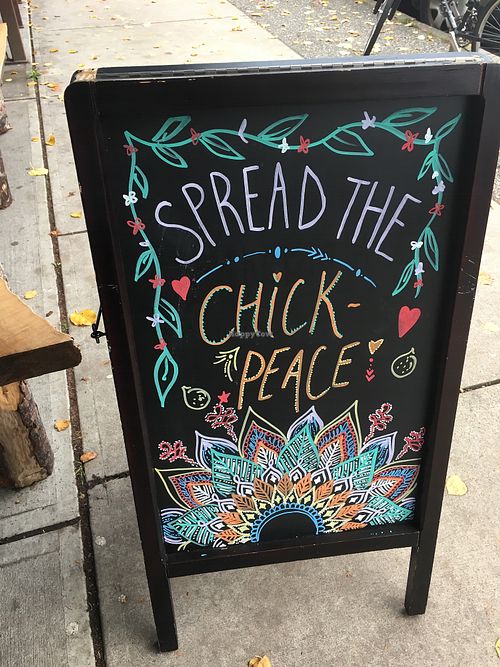 SPREAD THE
CHICK-
PEACE
HappyCow